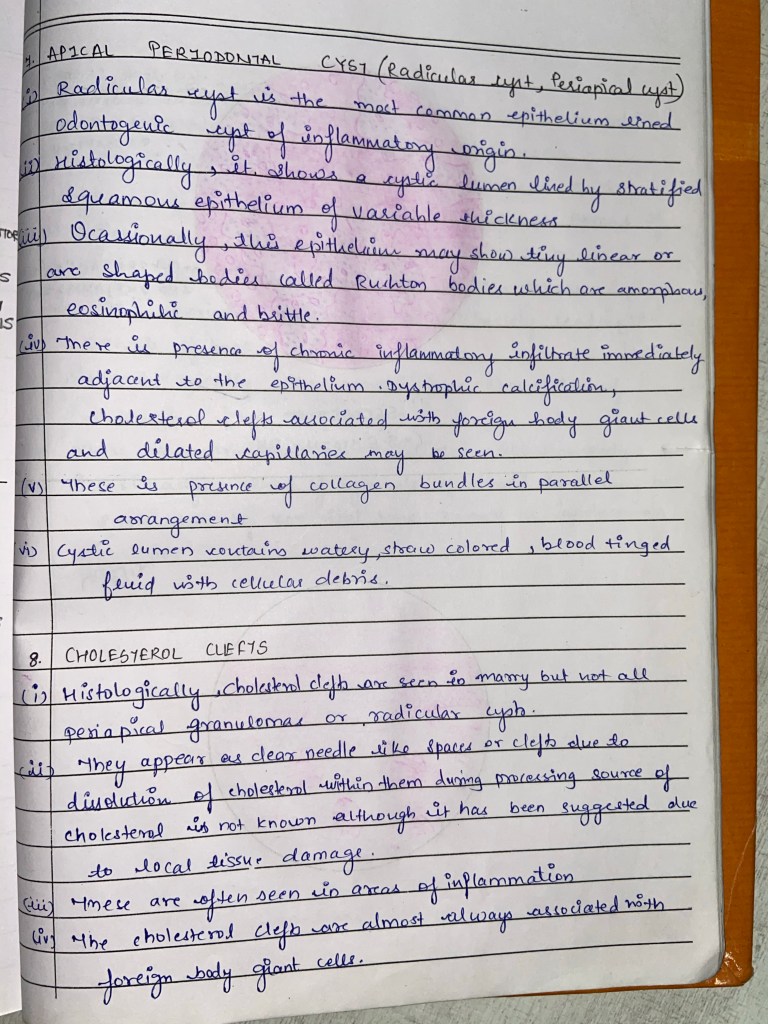 7. APICAL PERIODONTAL CYST (Radicular cyst, Periapical cyst)
i) Radicular cyst is the most common epithelium lined
odontogenic cyst of inflammatory origin.
ii) Histologically, it shows a cystic lumen lined by stratified
squamous epithelium of variable thickness
iii) Ocassionally, this epithelium may show tiny linear or
arc shaped bodies called Rushton bodies which are amorphous,
eosinophilic and brittle.
(iv) There is presence of chronic inflammatory infiltrate immediately
adjacent to the epithelium. Dystrophic calcification,
cholesterol clefts associated with foreign body giant cells
and dilated capillaries may be seen.
(v) These is presence of collagen bundles in parallel
arrangement
vi) Cystic lumen contains watery, straw colored, blood tinged
fluid with cellular debris.
8. CHOLESTEROL CLEFTS
(i) Histologically, cholesterol clefts are seen in many but not all
periapical granulomas or radicular cysts.
(ii) They appear as clear needle like spaces or clefts due to
dissolution of cholesterol within them during processing source of
cholesterol is not known although it has been suggested due
to local tissue damage.
(iii) These are often seen in areas of inflammation
(iv) The cholesterol clefts are almost always associated with
foreign body giant cells.